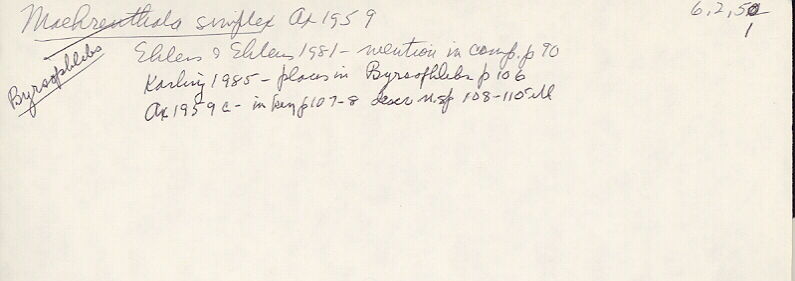 Maehrenthalia simplex Ax 1959
6,2,50
1
Byrsophlebs
Ehlers & Ehlers 1981 - mention in comp. p 90
Karling 1985 - places in Byrsophlebs p 106
Ax 1959a - in key p 107-8 descr n.sp 108-110 ill